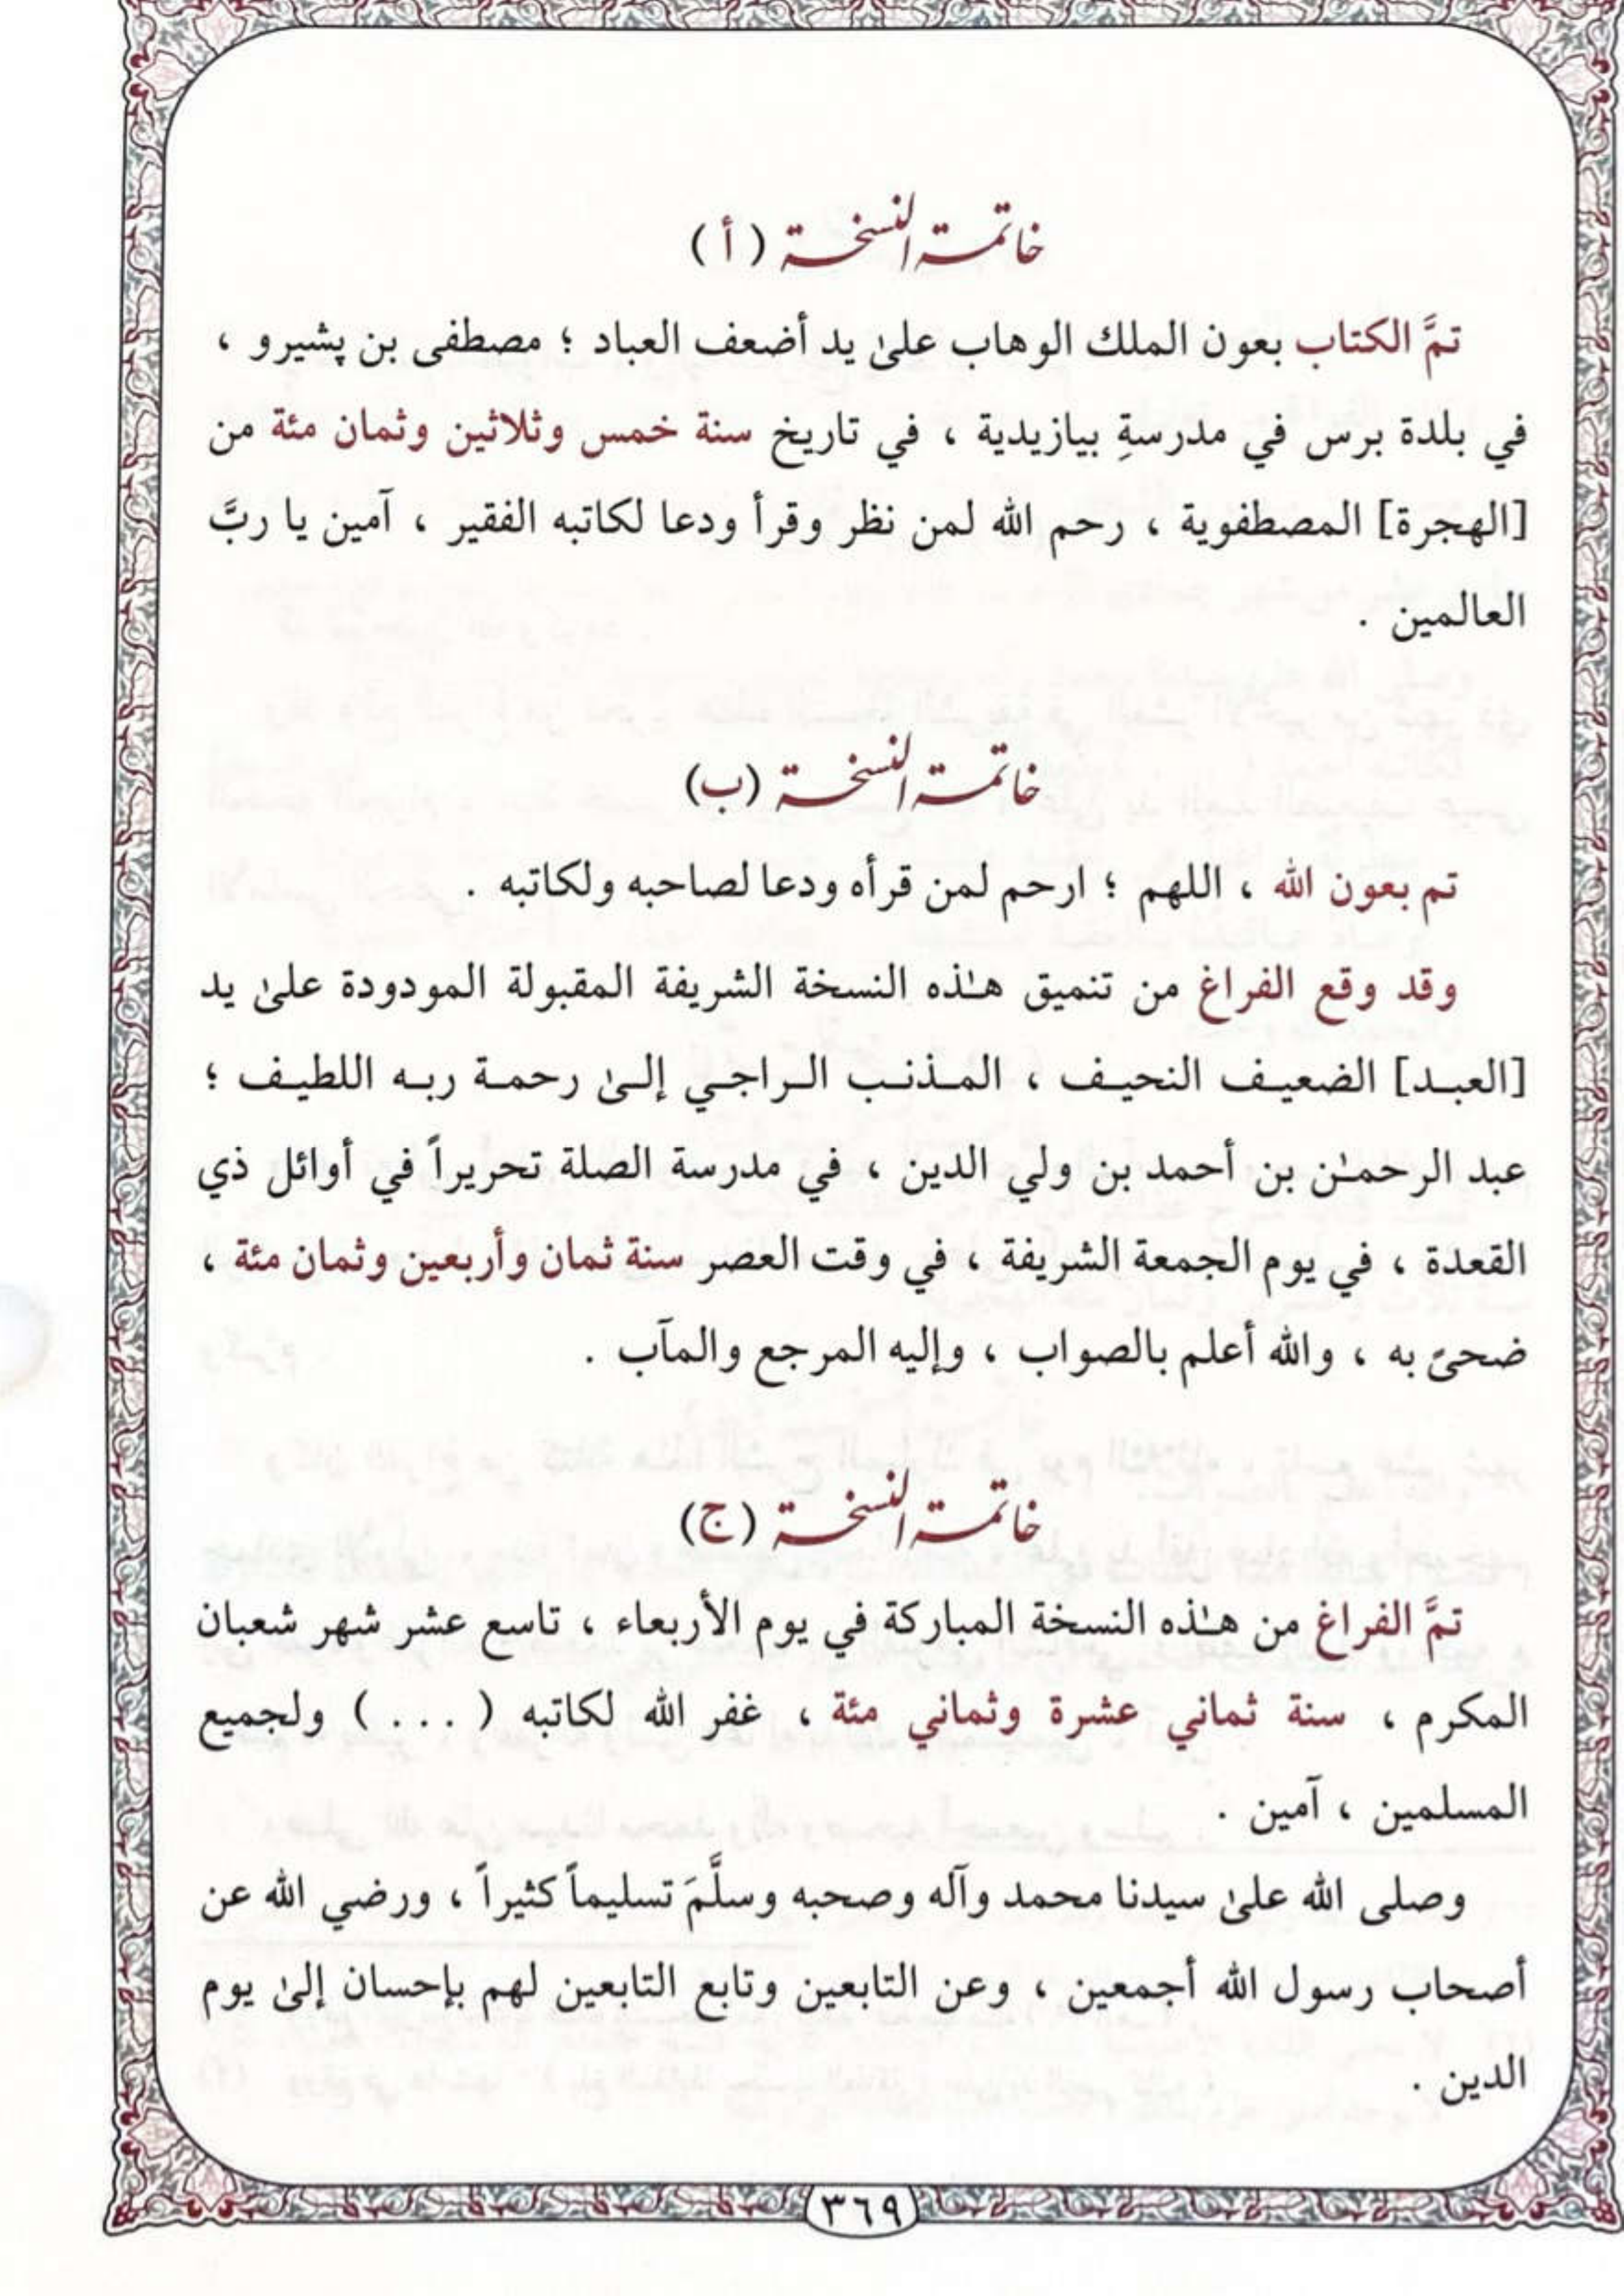 خاتمة النسخة ( أ )
تمَّ الكتاب بعون الملك الوهاب علىٰ يد أضعف العباد ؛ مصطفى بن پشيرو ،
في بلدة برس في مدرسةِ بيازيدية ، في تاريخ سنة خمس وثلاثين وثمان مئة من
[الهجرة] المصطفوية ، رحم الله لمن نظر وقرأ ودعا لكاتبه الفقير ، آمين يا ربَّ
العالمين .
خاتمة النسخة (ب)
تم بعون الله ، اللهم ؛ ارحم لمن قرأه ودعا لصاحبه ولكاتبه .
وقد وقع الفراغ من تنميق هـٰذه النسخة الشريفة المقبولة المودودة علىٰ يد
[العبـد] الضعيـف النحيـف ، المـذنـب الـراجـي إلـىٰ رحمـة ربـه اللطيـف ؛
عبد الرحمـٰن بن أحمد بن ولي الدين ، في مدرسة الصلة تحريراً في أوائل ذي
القعدة ، في يوم الجمعة الشريفة ، في وقت العصر سنة ثمان وأربعين وثمان مئة ،
ضحىً به ، والله أعلم بالصواب ، وإليه المرجع والمآب .
خاتمة النسخة (ج)
تمَّ الفراغ من هـٰذه النسخة المباركة في يوم الأربعاء ، تاسع عشر شهر شعبان
المكرم ، سنة ثماني عشرة وثماني مئة ، غفر الله لكاتبه ( . . . ) ولجميع
المسلمين ، آمين .
وصلى الله علىٰ سيدنا محمد وآله وصحبه وسلَّمَ تسليماً كثيراً ، ورضي الله عن
أصحاب رسول الله أجمعين ، وعن التابعين وتابع التابعين لهم بإحسان إلىٰ يوم
الدين .
٣٦٩